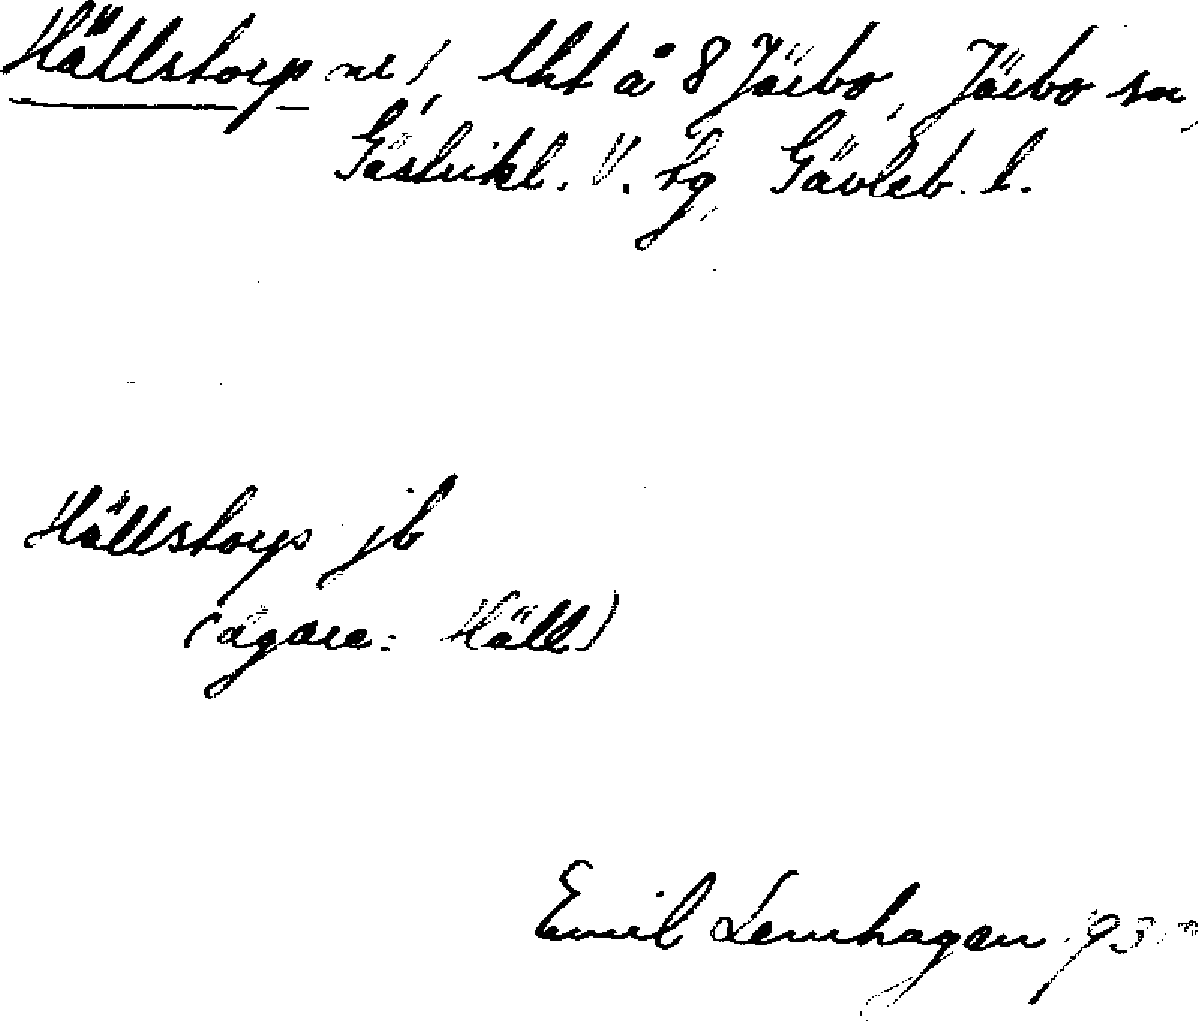 Hällstorp nr 1, lht å 8 Järbo, Järbo sn,
Gästrikl. V. tg, Gävleb. l.
Hällstorps jb
(ägare: Häll)
Emil Lennhagen